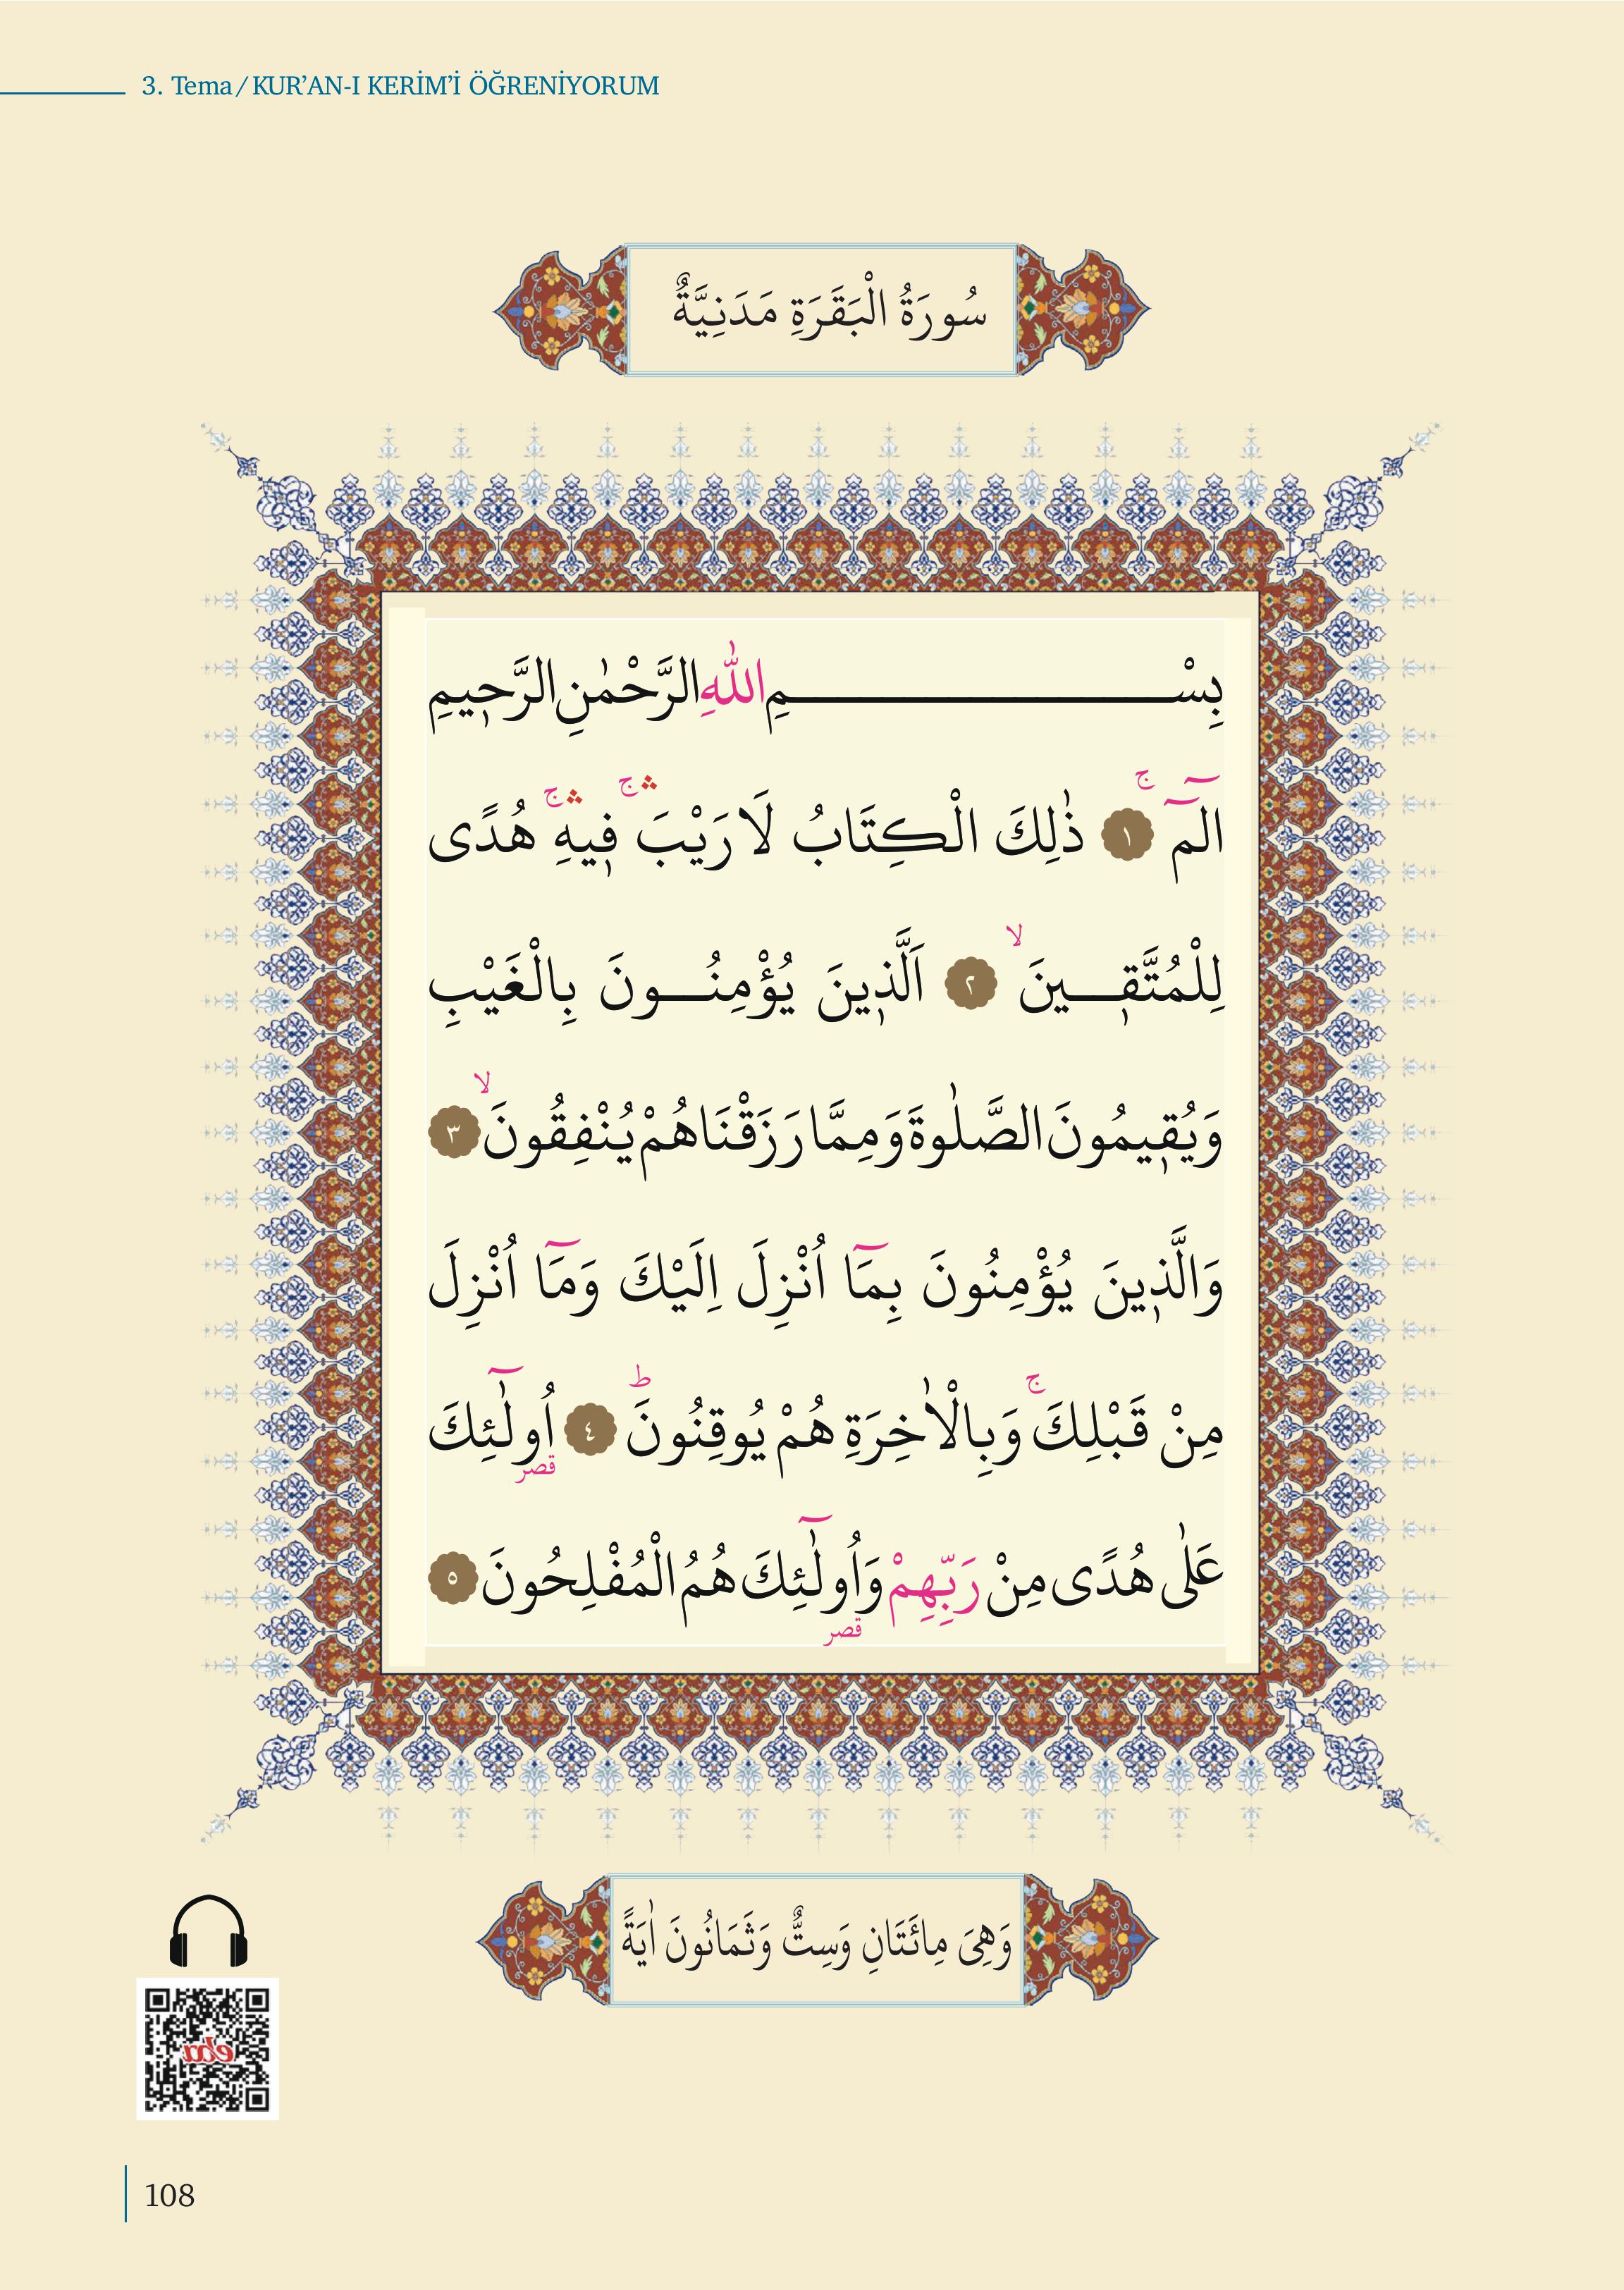 3. Tema / KUR’AN-I KERİM’İ ÖĞRENİYORUM
سُورَةُ الْبَقَرَةِ مَدَنِيَّةٌ
بِسْـــــــــــــــــــمِ اللّٰهِ الرَّحْمٰنِ الرَّح۪يمِ
الٓمٓ ۚ ﴿١﴾ ذٰلِكَ الْكِتَابُ لَا رَيْبَ ۚۛ ف۪يهِ ۚۛ هُدًى
لِلْمُتَّق۪ـــينَ ۙ ﴿٢﴾ اَلَّذ۪ينَ يُؤْمِنُـــونَ بِالْغَيْبِ
وَيُق۪يمُونَ الصَّلٰوةَ وَمِمَّا رَزَقْنَاهُمْ يُنْفِقُونَ ۙ ﴿٣﴾
وَالَّذ۪ينَ يُؤْمِنُونَ بِمَٓا اُنْزِلَ اِلَيْكَ وَمَٓا اُنْزِلَ
مِنْ قَبْلِكَ ۚ وَبِالْاٰخِرَةِ هُمْ يُوقِنُونَ ؕ ﴿٤﴾ اُو۬لٰٓئِكَ
قصر
عَلٰى هُدًى مِنْ رَبِّهِمْ وَاُو۬لٰٓئِكَ هُمُ الْمُفْلِحُونَ ﴿٥﴾
قصر
وَهِىَ مِائَتَانِ وَسِتٌّ وَثَمَانُونَ اٰيَةً
eba
108